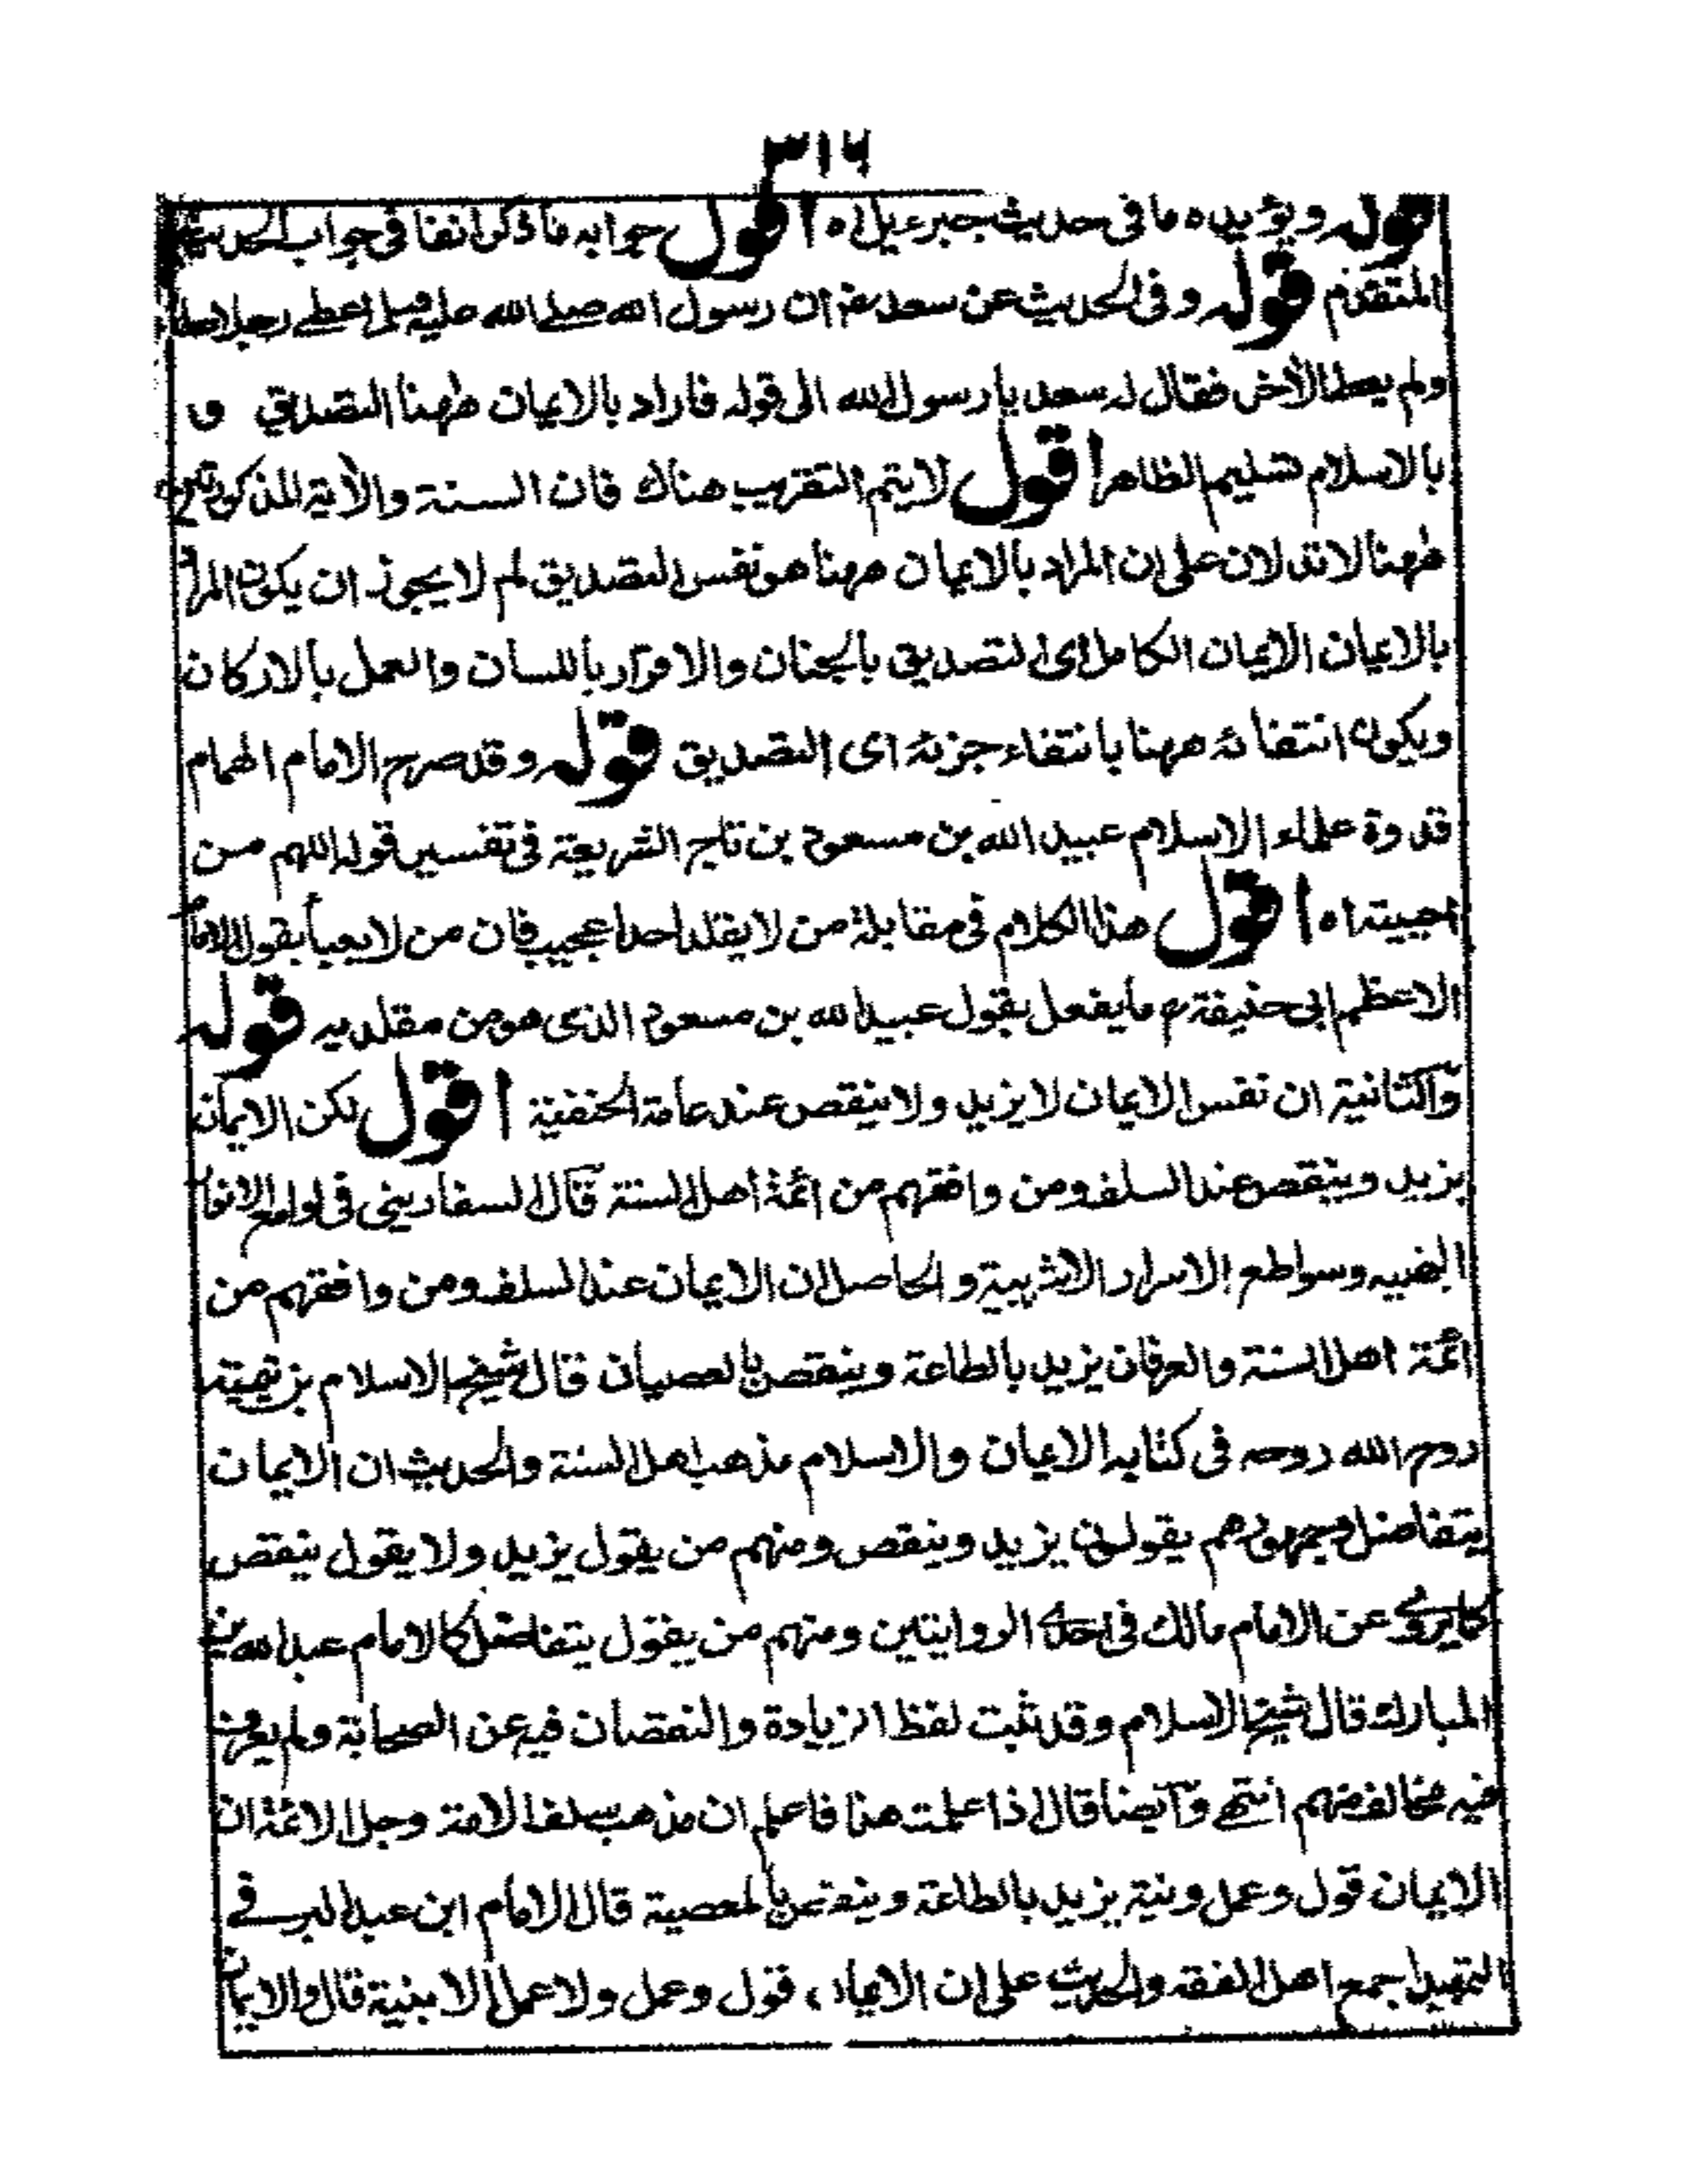 ٣١٦
قوله ويؤيده ما فى حديث جبرءيل اه اقول جوابه ما ذكر انفا فى جواب الحديث
المتقدم قوله وفى الحديث عن سعد رض ان رسول الله صلى الله عليه وسلم اعطى رجلا
ولم يعط الأخر فقال له سعد يا رسول الله الى قوله فاراد بالايمان ههنا التصديق و
بالاسلام تسليم الظاهر اقول لا يتم التقريب هناك فان السنة والأية المذكورتين
ههنا لا تدلان على ان المراد بالايمان ههنا هو نفس التصديق لم لا يجوز ان يكون المراد
بالايمان الايمان الكامل اى التصديق بالجنان والاقرار باللسان والعمل بالاركان
ويكون انتفائه ههنا بانتفاء جزئه اى التصديق قوله وقد صرح الامام الهمام
قدوة علماء الاسلام عبيد الله بن مسعود بن تاج الشريعة فى تفسير قوله اللهم من
احييته اه اقول هذا الكلام فى مقابلة من لا يقلد احدا عجيب فان من لا يعبأ بقول الامام
الاعظم ابى حنيفة رح ما يفعل بقول عبيد الله بن مسعود الذى هو من مقلديه قوله
والثانية ان نفس الايمان لا يزيد ولا ينقص عند عامة الحنفية اقول لكن الايمان
يزيد وينقص عند السلف ومن وافقهم من ائمة اهل السنة قال السفارينى فى لوامع الانوار
البهيه وسواطع الاسرار الاثرية والحاصل ان الايمان عند السلف ومن وافقهم من
ائمة اهل السنة والعرفان يزيد بالطاعة وينقص بالعصيان قال شيخ الاسلام بن تيمية
روح الله روحه فى كتابه الايمان والاسلام مذهب اهل السنة والحديث ان الايمان
يتفاضل وجمهورهم يقولون يزيد وينقص ومنهم من يقول يزيد ولا يقول ينقص
كما يروى عن الامام مالك فى احدى الروايتين ومنهم من يقول يتفاضل كالامام عبد الله بن
المبارك قال شيخ الاسلام وقد ثبت لفظ الزيادة والنقصان فيه عن الصحابة ولم يعرف
فيه مخالف منهم انتهى وأيضا قال اذا علمت هذا فاعلم ان مذهب سلف الامة وجل الائمة ان
الايمان قول وعمل ونية يزيد بالطاعة وينقص بالمعصية قال الامام ابن عبد البر فى
التمهيد اجمع اهل الفقه والحديث على ان الايمان قول وعمل ولا عمل الا بنية قال والايمان